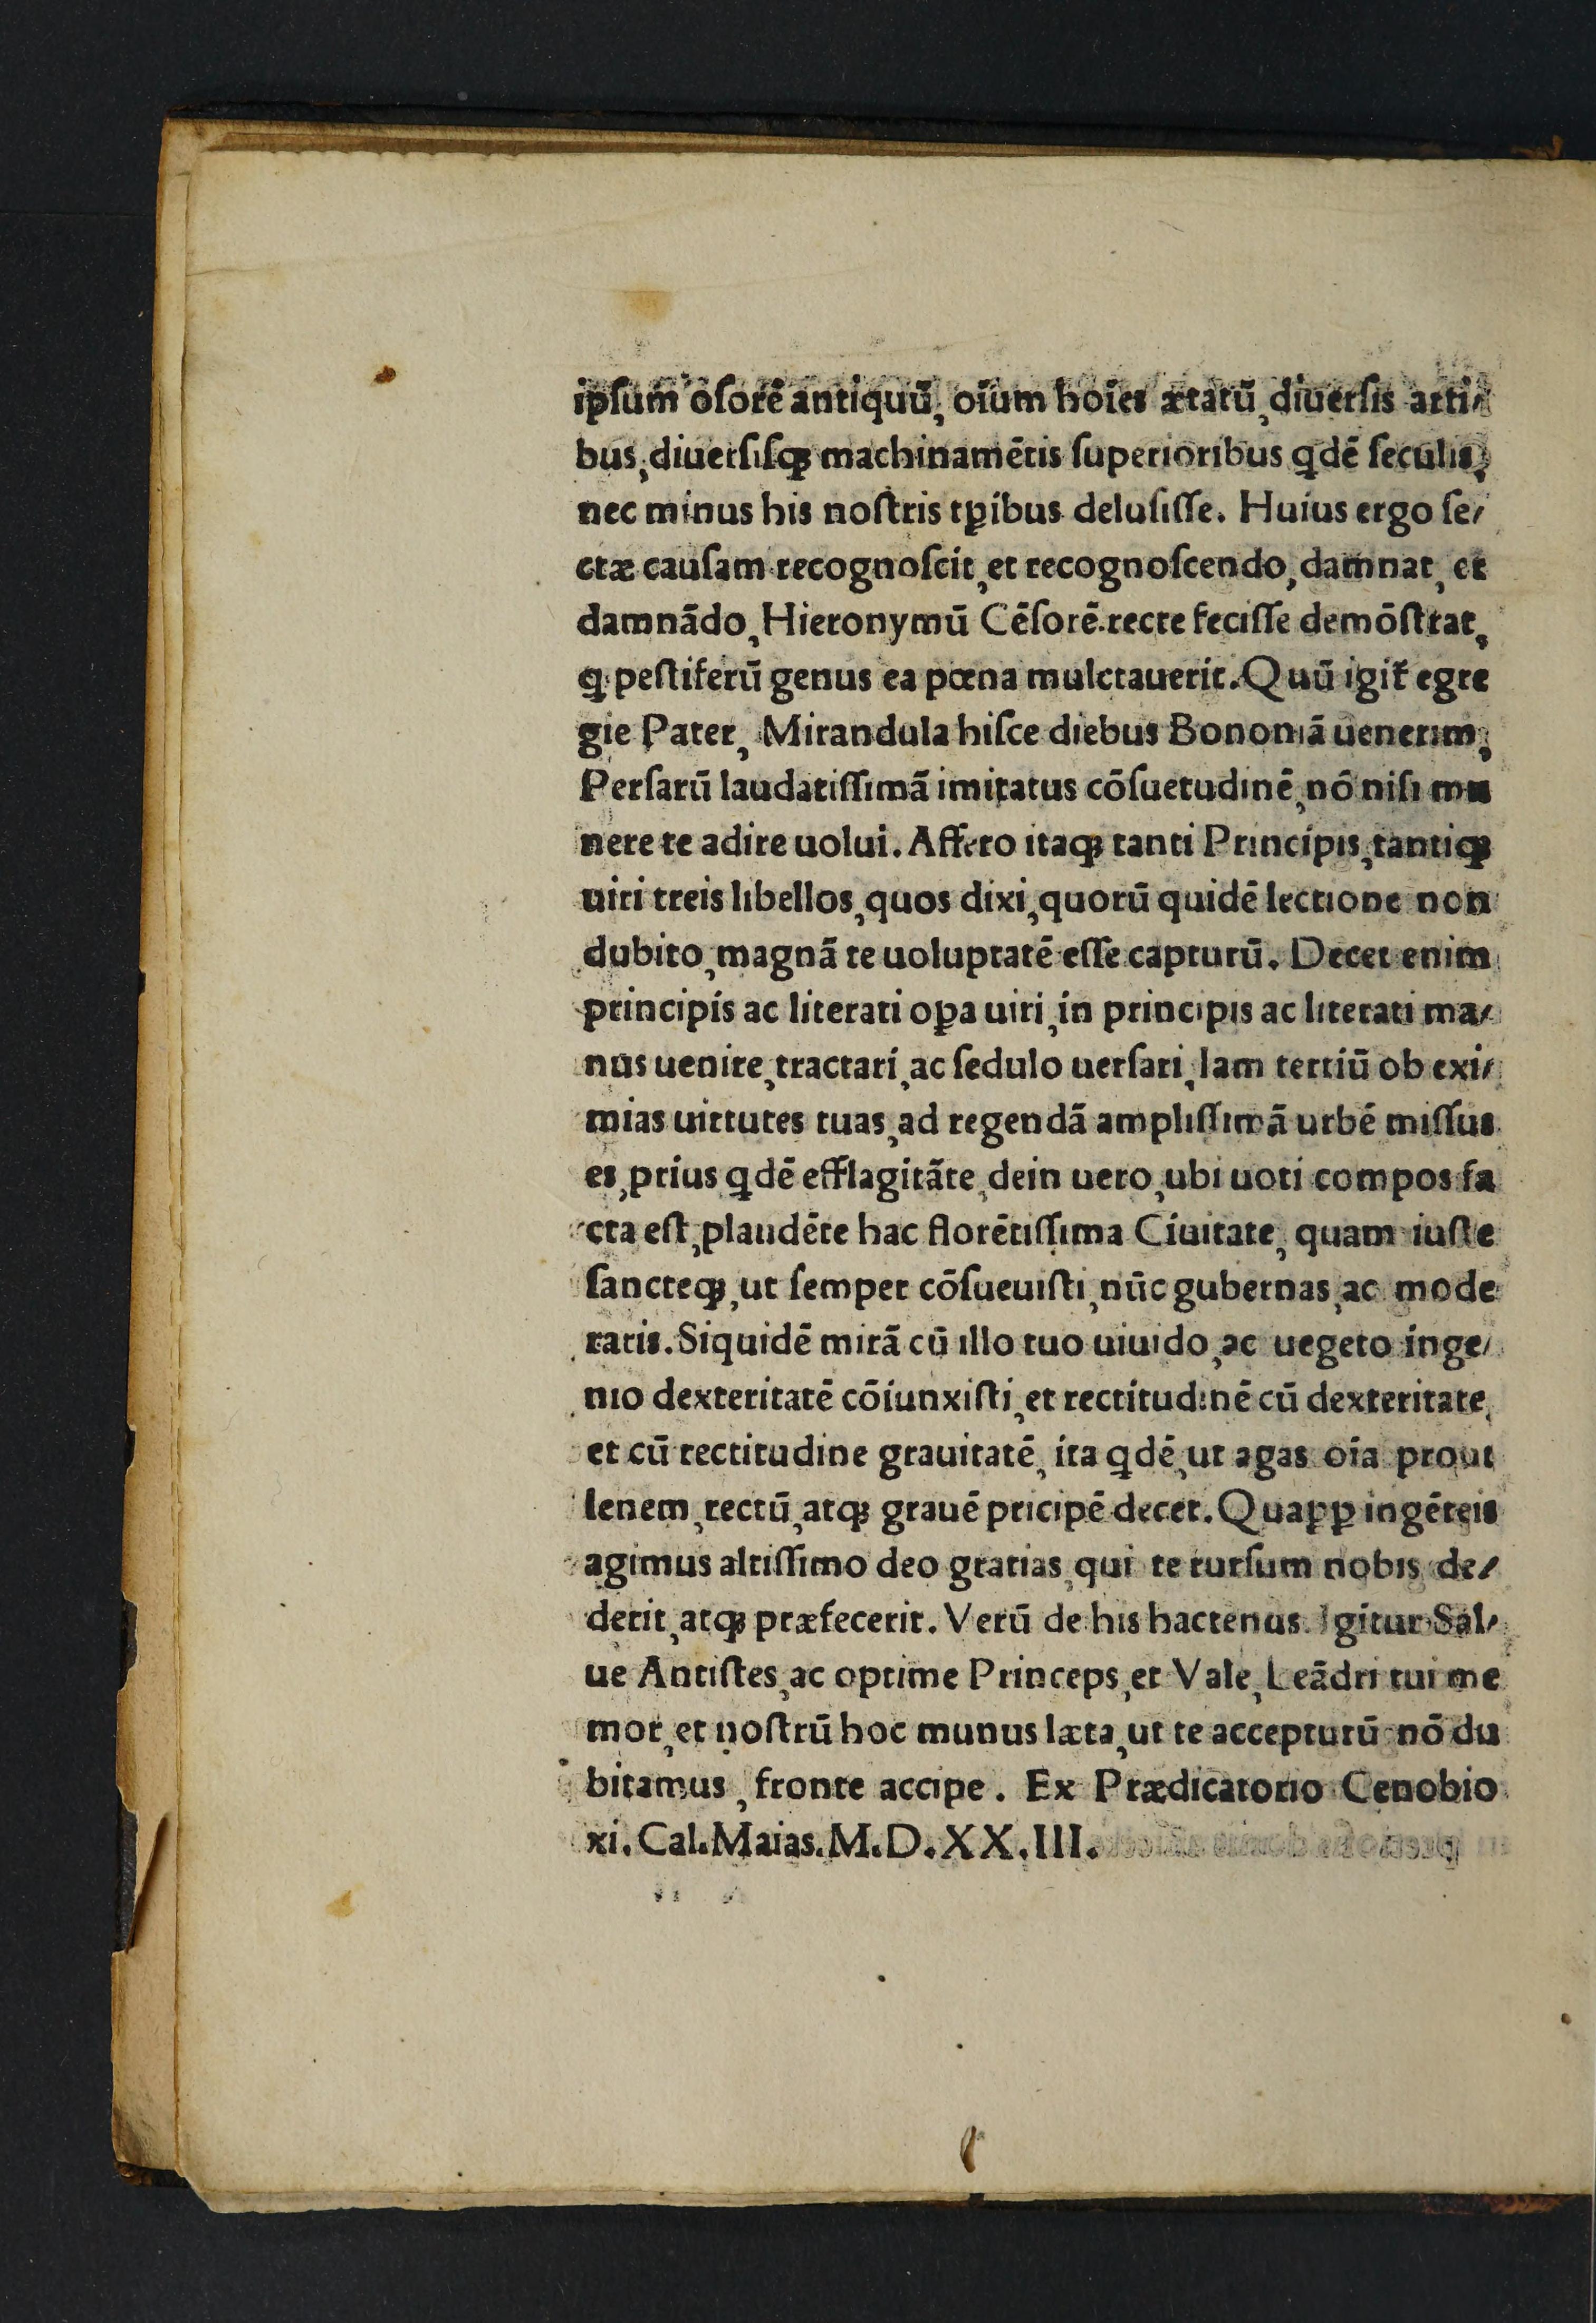 ipſum oſorē antiquū, oīum hoīes ætatū, diuerſis arti⸗
bus, diuerſiſqꝫ machinamētis ſuperioribus qdē ſeculis,
nec minus his noſtris tꝑibus deluſiſſe. Huius ergo ſe⸗
ctæ cauſam recognoſcit, et recognoſcendo, damnat, et
damnādo, Hieronymū Cēſorē recte feciſſe demōſtrat,
ꝙ peſtiferū genus ea pœna mulctauerit. Quū igit̃ egre
gie Pater, Mirandula hiſce diebus Bononiā uenerim,
Perſarū laudatiſſimā imitatus cōſuetudinē, nō niſi mu
nere te adire uolui. Affero itaqꝫ tanti Principis, tantiqꝫ
uiri treis libellos, quos dixi, quorū quidē lectione non
dubito, magnā te uoluptatē eſſe capturū. Decet enim
principis ac literati oꝑa uiri, in principis ac literati ma⸗
nus uenire, tractari, ac ſedulo uerſari, Iam tertiū ob exi⸗
mias uirtutes tuas, ad regendā ampliſſimā urbē miſſus
es, prius qdē efflagitāte, dein uero, ubi uoti compos fa
cta eſt, plaudēte hac florētiſſima Ciuitate, quam iuſte
ſancteqꝫ, ut ſemper cōſueuiſti, nūc gubernas, ac mode
raris. Siquidē mirā cū illo tuo uiuido, ac uegeto inge⸗
nio dexteritatē cōiunxiſti, et rectitudinē cū dexteritate,
et cū rectitudine grauitatē, ita qdē, ut agas oīa prout
lenem, rectū, atqꝫ grauē pricipē decet. Quaꝑꝑ ingēteis
agimus altiſſimo deo gratias, qui te rurſum nobis de⸗
derit, atqꝫ præfecerit. Verū de his hactenus. Igitur Sal⸗
ue Antiſtes, ac optime Princeps, et Vale, Leādri tui me
mor, et noſtrū hoc munus læta, ut te accepturū nō du
bitamus, fronte accipe. Ex Prædicatorio Cenobio
xi. Cal. Maias. M.D.XX.III.